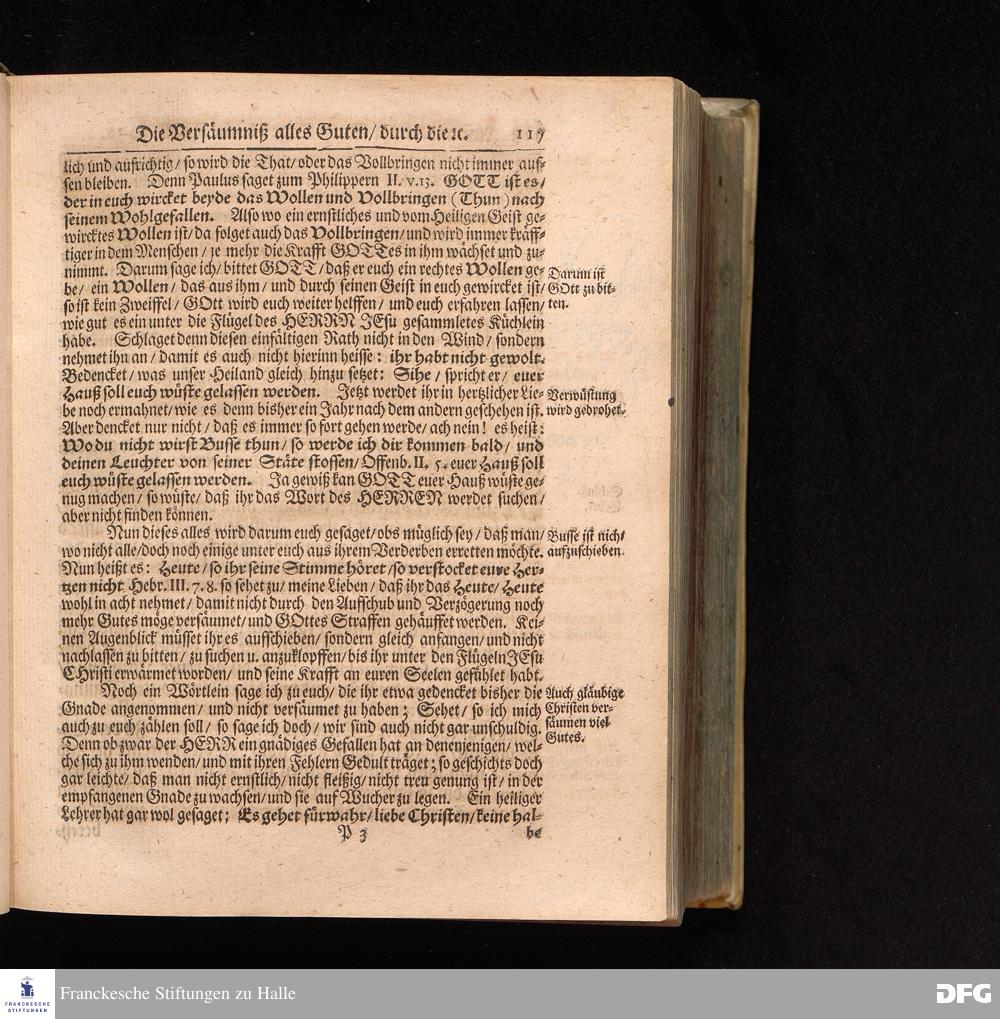 Die Versäumniß alles Guten/ durch die ꝛc. 117
lich und aufrichtig/ so wird die That/ oder das Vollbringen nicht immer aus-
sen bleiben. Denn Paulus saget zum Philippern II. v. 13. GOTT ist es/
der in euch wircket beyde das Wollen und Vollbringen (Thun) nach
seinem Wohlgefallen. Also wo ein ernstliches und vom Heiligen Geist ge-
wircktes Wollen ist/ da folget auch das Vollbringen/ und wird immer kräff-
tiger in dem Menschen/ je mehr die Krafft GOTTes in ihm wächset und zu-
nimmt. Darum sage ich/ bittet GOTT/ daß er euch ein rechtes Wollen ge-
be/ ein Wollen/ das aus ihm/ und durch seinen Geist in euch gewircket ist/
so ist kein Zweiffel/ GOtt wird euch weiter helffen/ und euch erfahren lassen/
wie gut es ein unter die Flügel des HERRN JEsu gesammletes Küchlein
habe. Schlaget denn diesen einfältigen Rath nicht in den Wind/ sondern
nehmet ihn an/ damit es auch nicht hierinn heisse: ihr habt nicht gewolt.
Bedencket/ was unser Heiland gleich hinzu setzet: Sihe/ spricht er/ euer
Hauß soll euch wüste gelassen werden. Jetzt werdet ihr in hertzlicher Lie-
be noch ermahnet/ wie es denn bisher ein Jahr nach dem andern geschehen ist.
Aber dencket nur nicht/ daß es immer so fort gehen werde/ ach nein! es heist:
Wo du nicht wirst Busse thun/ so werde ich dir kommen bald/ und
deinen Leuchter von seiner Stäte stossen/ Offenb. II. 5. euer Hauß soll
euch wüste gelassen werden. Ja gewiß kan GOTT euer Hauß wüste ge-
nug machen/ so wüste/ daß ihr das Wort des HERREN werdet suchen/
aber nicht finden können.
Nun dieses alles wird darum euch gesaget/ obs müglich sey/ daß man/
wo nicht alle/ doch noch einige unter euch aus ihrem Verderben erretten möchte.
Nun heißt es: Heute/ so ihr seine Stimme höret/ so verstocket eure Her-
tzen nicht Hebr. III. 7. 8. so sehet zu/ meine Lieben/ daß ihr das Heute/ Heute
wohl in acht nehmet/ damit nicht durch den Aufschub und Verzögerung noch
mehr Gutes möge versäumet/ und GOttes Straffen gehäuffet werden. Kei-
nen Augenblick müsset ihr es aufschieben/ sondern gleich anfangen/ und nicht
nachlassen zu bitten/ zu suchen u. anzuklopffen/ bis ihr unter den Flügeln JEsu
CHristi erwärmet worden/ und seine Krafft an euren Seelen gefühlet habt.
Noch ein Wörtlein sage ich zu euch/ die ihr etwa gedencket bisher die
Gnade angenommen/ und nicht versäumet zu haben; Sehet/ so ich mich
auch zu euch zählen soll/ so sage ich doch/ wir sind auch nicht gar unschuldig.
Denn ob zwar der HERR ein gnädiges Gefallen hat an denenjenigen/ wel-
che sich zu ihm wenden/ und mit ihren Fehlern Gedult träget; so geschichts doch
gar leichte/ daß man nicht ernstlich/ nicht fleißig/ nicht treu genung ist/ in der
empfangenen Gnade zu wachsen/ und sie auf Wucher zu legen. Ein heiliger
Lehrer hat gar wol gesaget; Es gehet fürwahr/ liebe Christen/ keine hal-
P 3 be
Darum ist
GOtt zu bit-
ten.
Verwüstung
wird gedrohet.
Busse ist nicht
aufzuschieben.
Auch gläubige
Christen ver-
säumen viel
Gutes.
FRANCKESCHE
STIFTUNGEN
Franckesche Stiftungen zu Halle
DFG